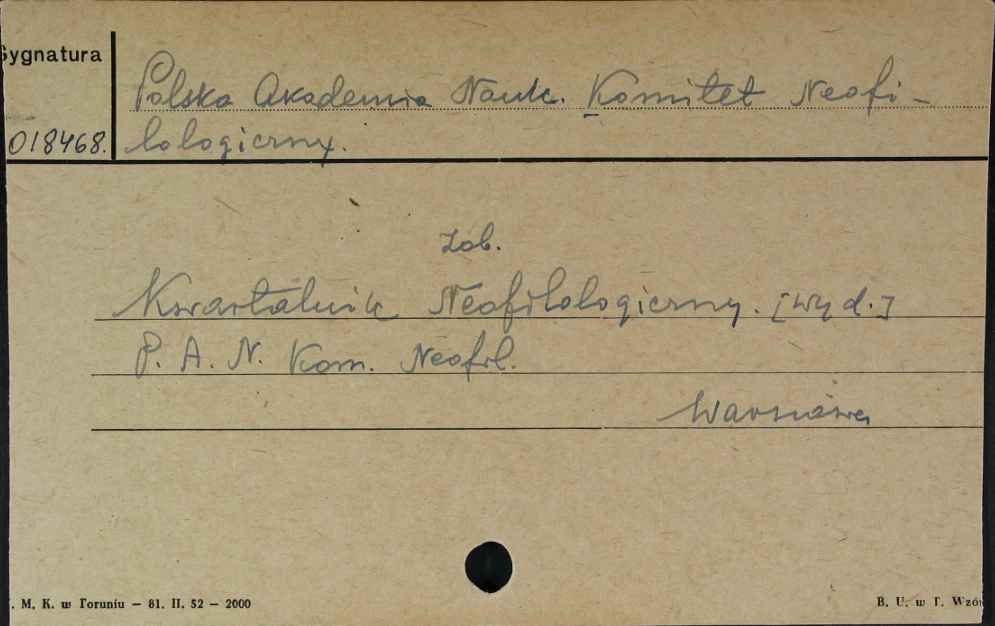 Sygnatura
Polska Akademia Nauk. Komitet Neofi-
018468. lologiczny.
Zob.
Kwartalnik Neofilologiczny. [Wyd.]
P. A. N. Kom. Neofil.
Warszawa
. M. K. w Toruniu — 81. II. 52 — 2000
B. U. w T. Wzór